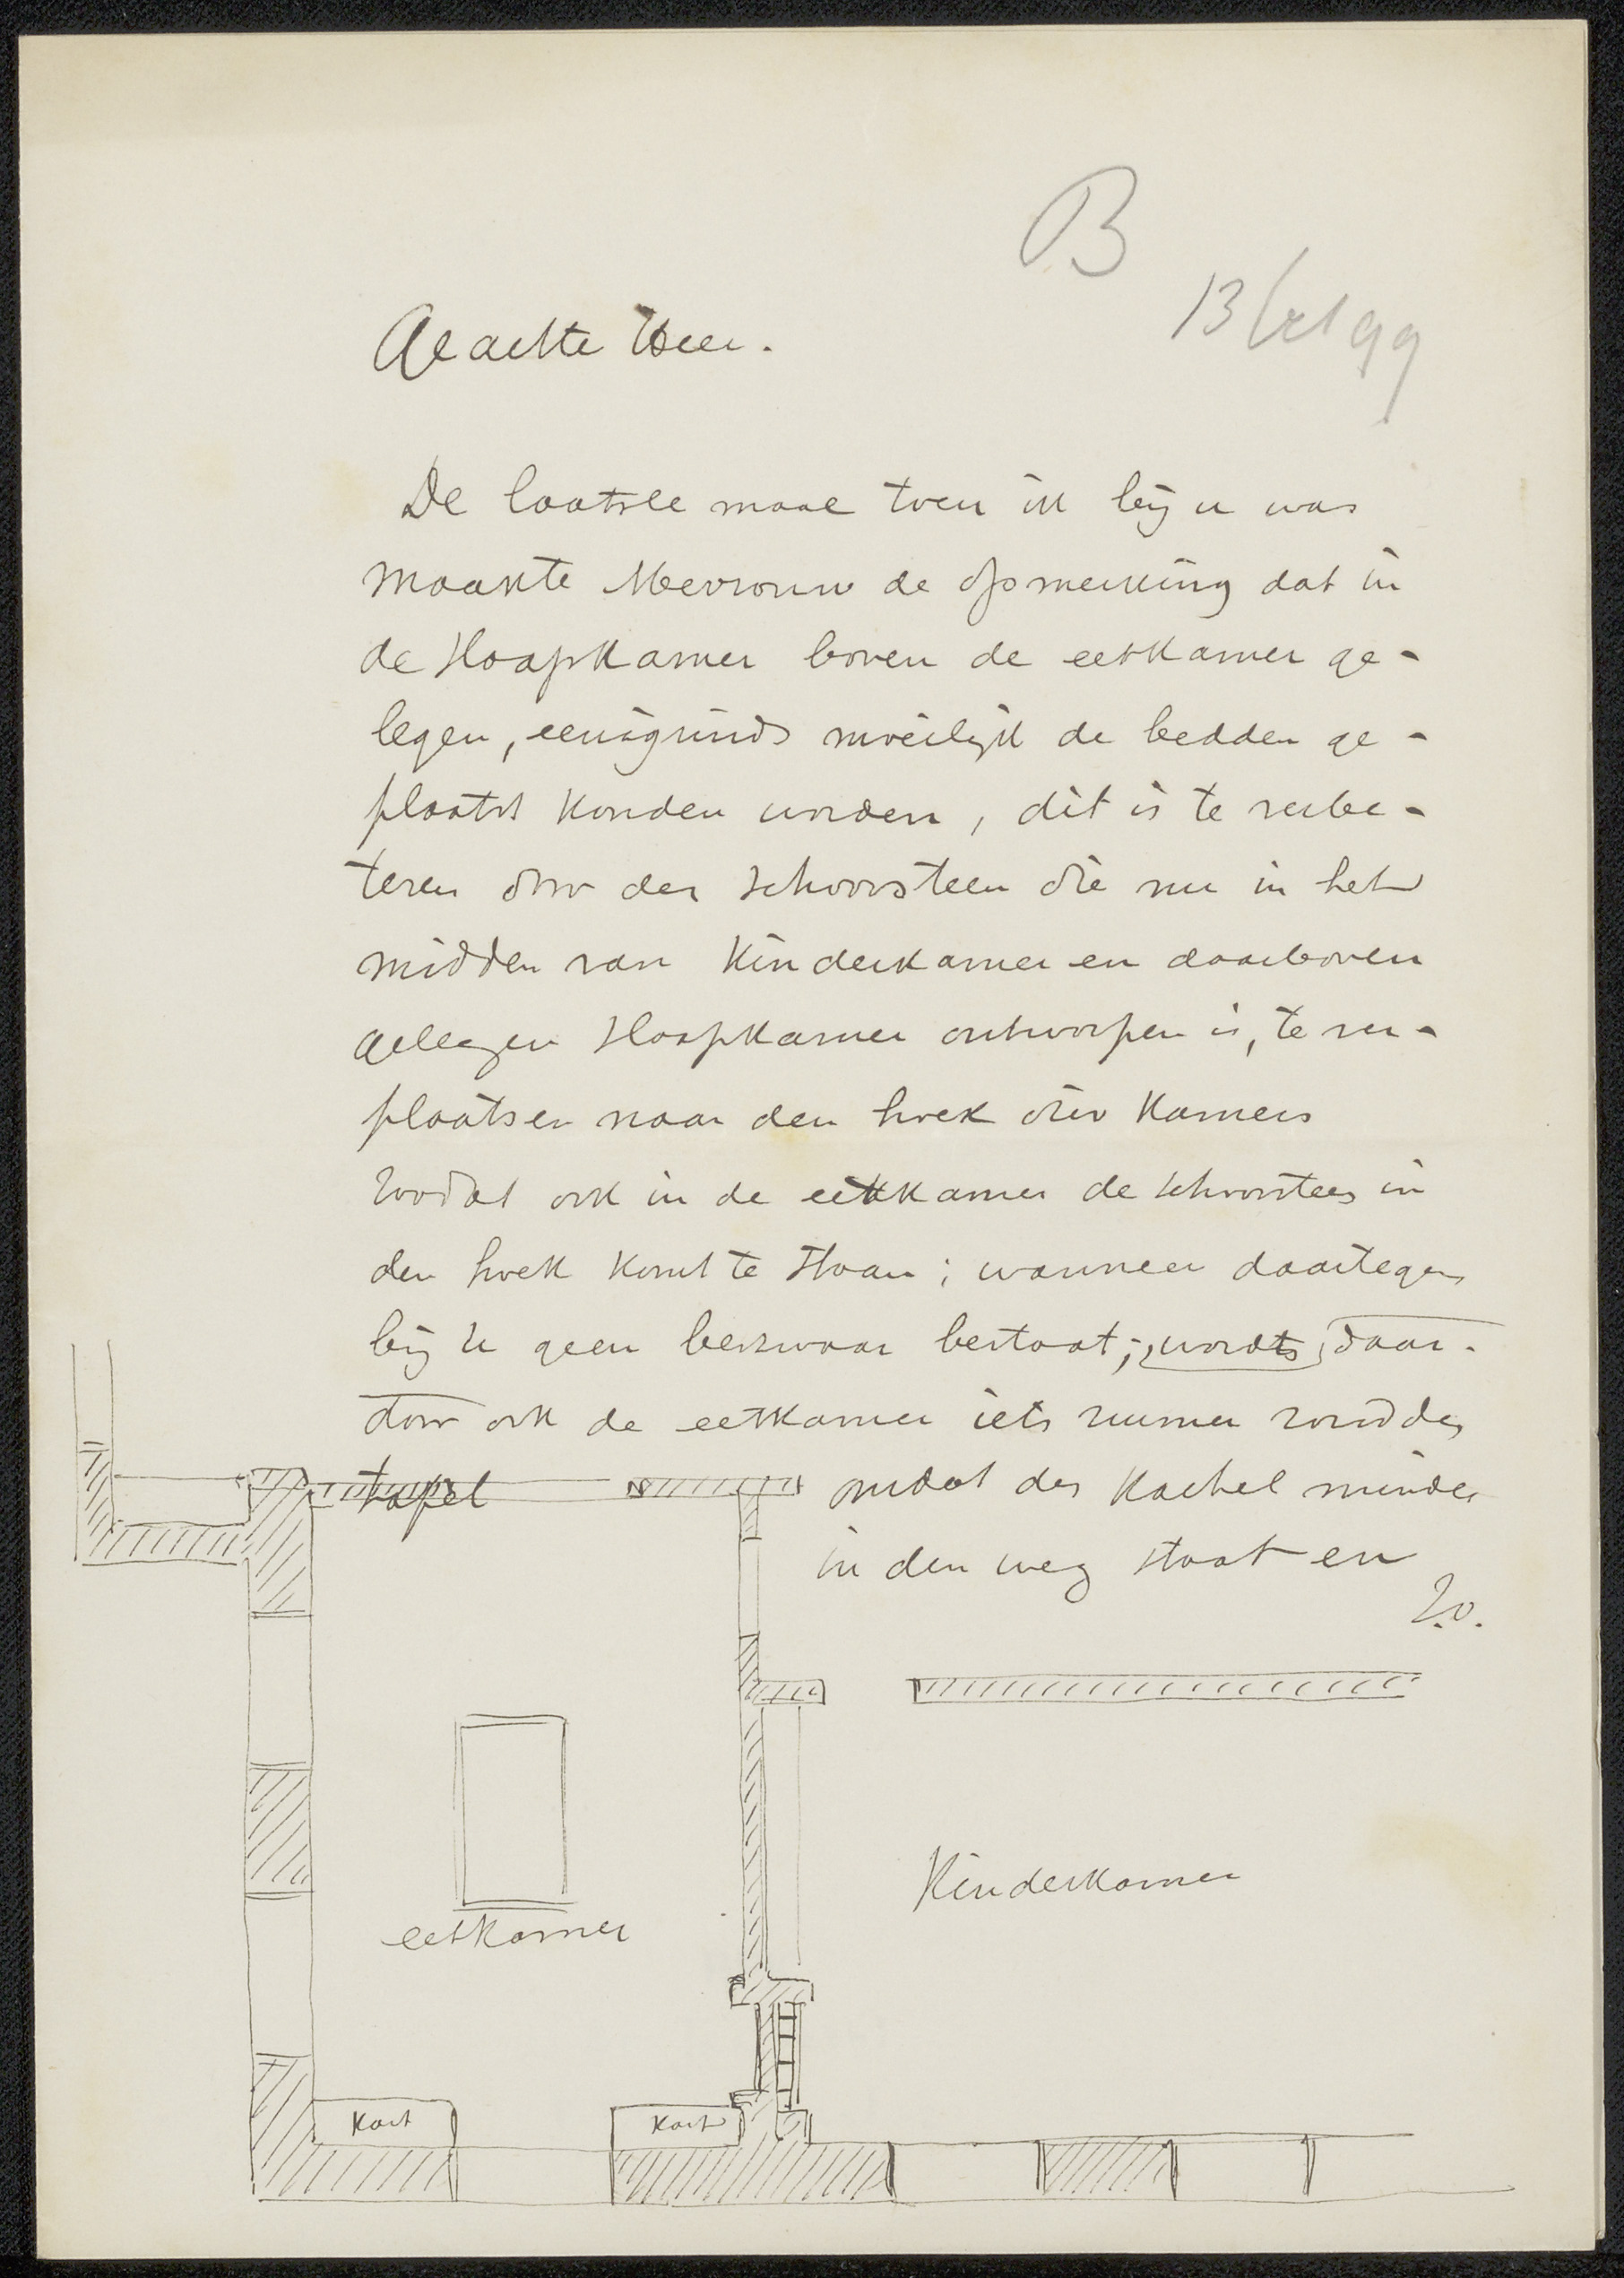 B
13/Oct 99
Geachte Heer.
De laatste maal toen ik bij u was
maakte Mevrouw de opmerking dat in
de slaapkamer boven de eetkamer ge-
legen, eenigsinds moeilijk de bedden ge-
plaatst konden worden, dit is te verbe-
teren door den schoorsteen die nu in het
midden van Kinderkamer en daarboven
gelegen slaapkamer ontworpen is, te ver-
plaatsen naar den hoek dier kamers
zoodat ook in de eetkamer de schoorsteen in
den hoek komt te staan; wanneer daartegen
bij U geen bezwaar bestaat; wordt daar-
door ook de eetkamer iets ruimer rondden
tafel omdat de kachel minder
in den weg staat en
Z.O.
Kinderkamer
eetkamer
Kast
Kast